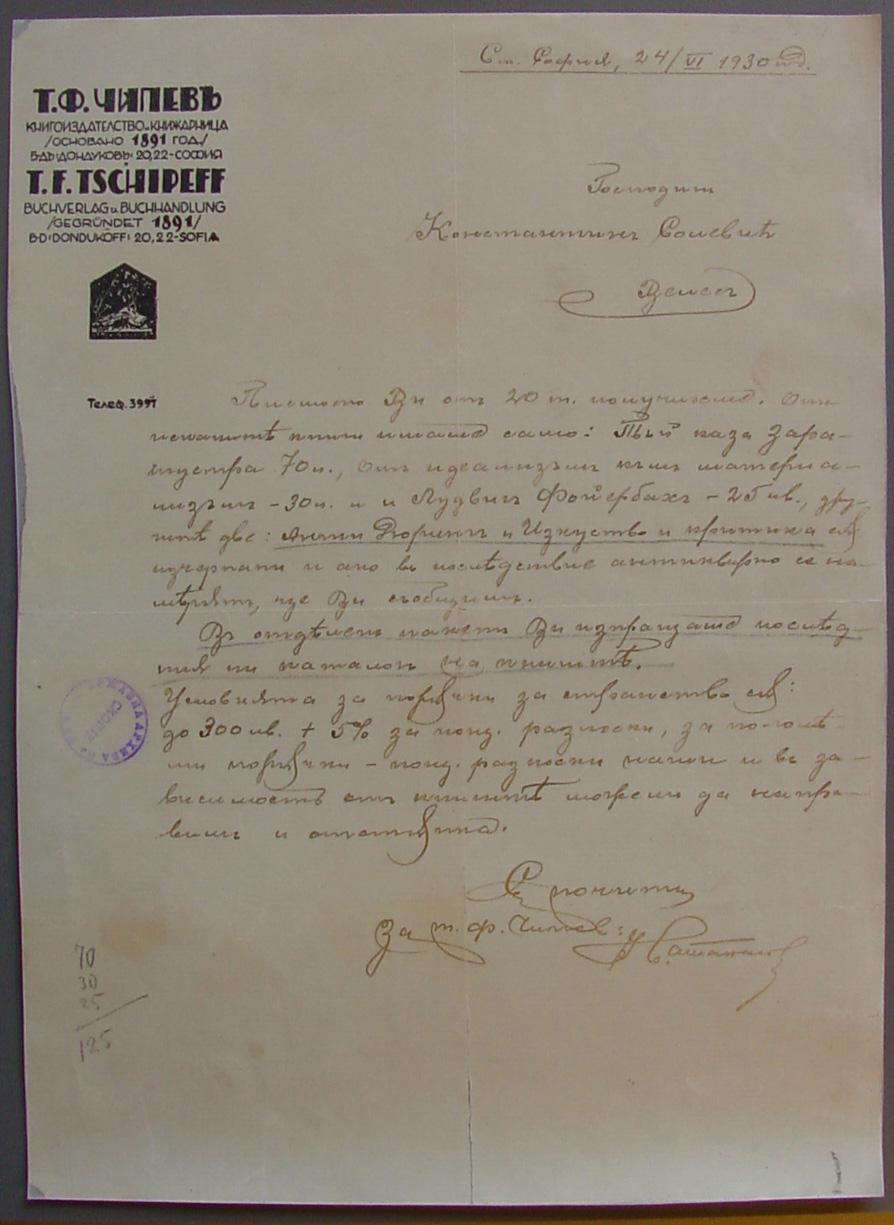 Ст. София, 24/VI 1930 год.
Т.Ф. ЧИПЕВЪ
КНИГОИЗДАТЕЛСТВО и КНИЖАРНИЦА
/ОСНОВАНО 1891 ГОД./
Б-ДЪ ДОНДУКОВЪ 20, 22-СОФИЯ
T. F. TSCHIPEFF
BUCHVERLAG u. BUCHHANDLUNG
/GEGRÜNDET 1891/
B-D DONDUKOFF 20, 22-SOFIA
Господинъ
Константинъ
Велесъ
Телеф. 3997
Писмото Ви отъ 20 т. получихме. Отъ
исканитѣ книги имаме само: Тъй каза Зара-
тустра 70 л., Отъ идеализъмъ къмъ материа-
лизъмъ - 30 л. и Лудвигъ Фойербахъ - 25 лв., дру-
гитѣ две: Анти Дюрингъ и Изкуство и критика сѫ
изчерпани и ако въ последствие антикварно се на-
мѣрятъ, ще Ви съобщимъ.
Въ отдѣленъ пакетъ Ви изпращаме послѣд-
ния ни каталогъ на книгитѣ.
Условията за порѫчки за странство сѫ:
до 300 лв. + 5% за пощ. разноски, за по-голѣ-
ми порѫчки - пощ. разноски наши и въ за-
висимость отъ книгитѣ можемъ да напра-
вимъ и отстѫпка.
Съ почитъ
За Т. Ф. Чипевъ:
ДРЖАВНА АРХИВА НА
СКОПЈЕ
70
30
25
125